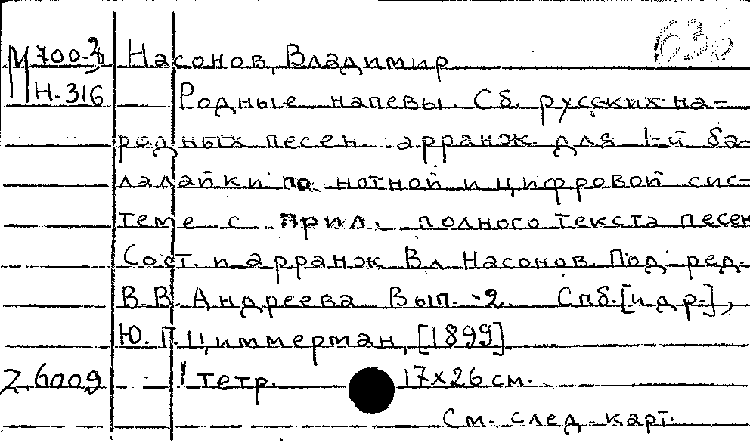 М 700-2 Насонов, Владимир 636
Н-316 Родные напевы. Сб. русских на-
родных песен аранж. для 1-й ба-
лалайки по нотной и цифровой сис-
теме с прил. полного текста песен
Сост. и арранж Вл Насонов. Под ред.
В.В. Андреева Вып. 2. Спб. [и др.],
Ю. Г. Циммерман, [1899]
Z 6009 1 тетр. 17х26 см.
См. след. карт.